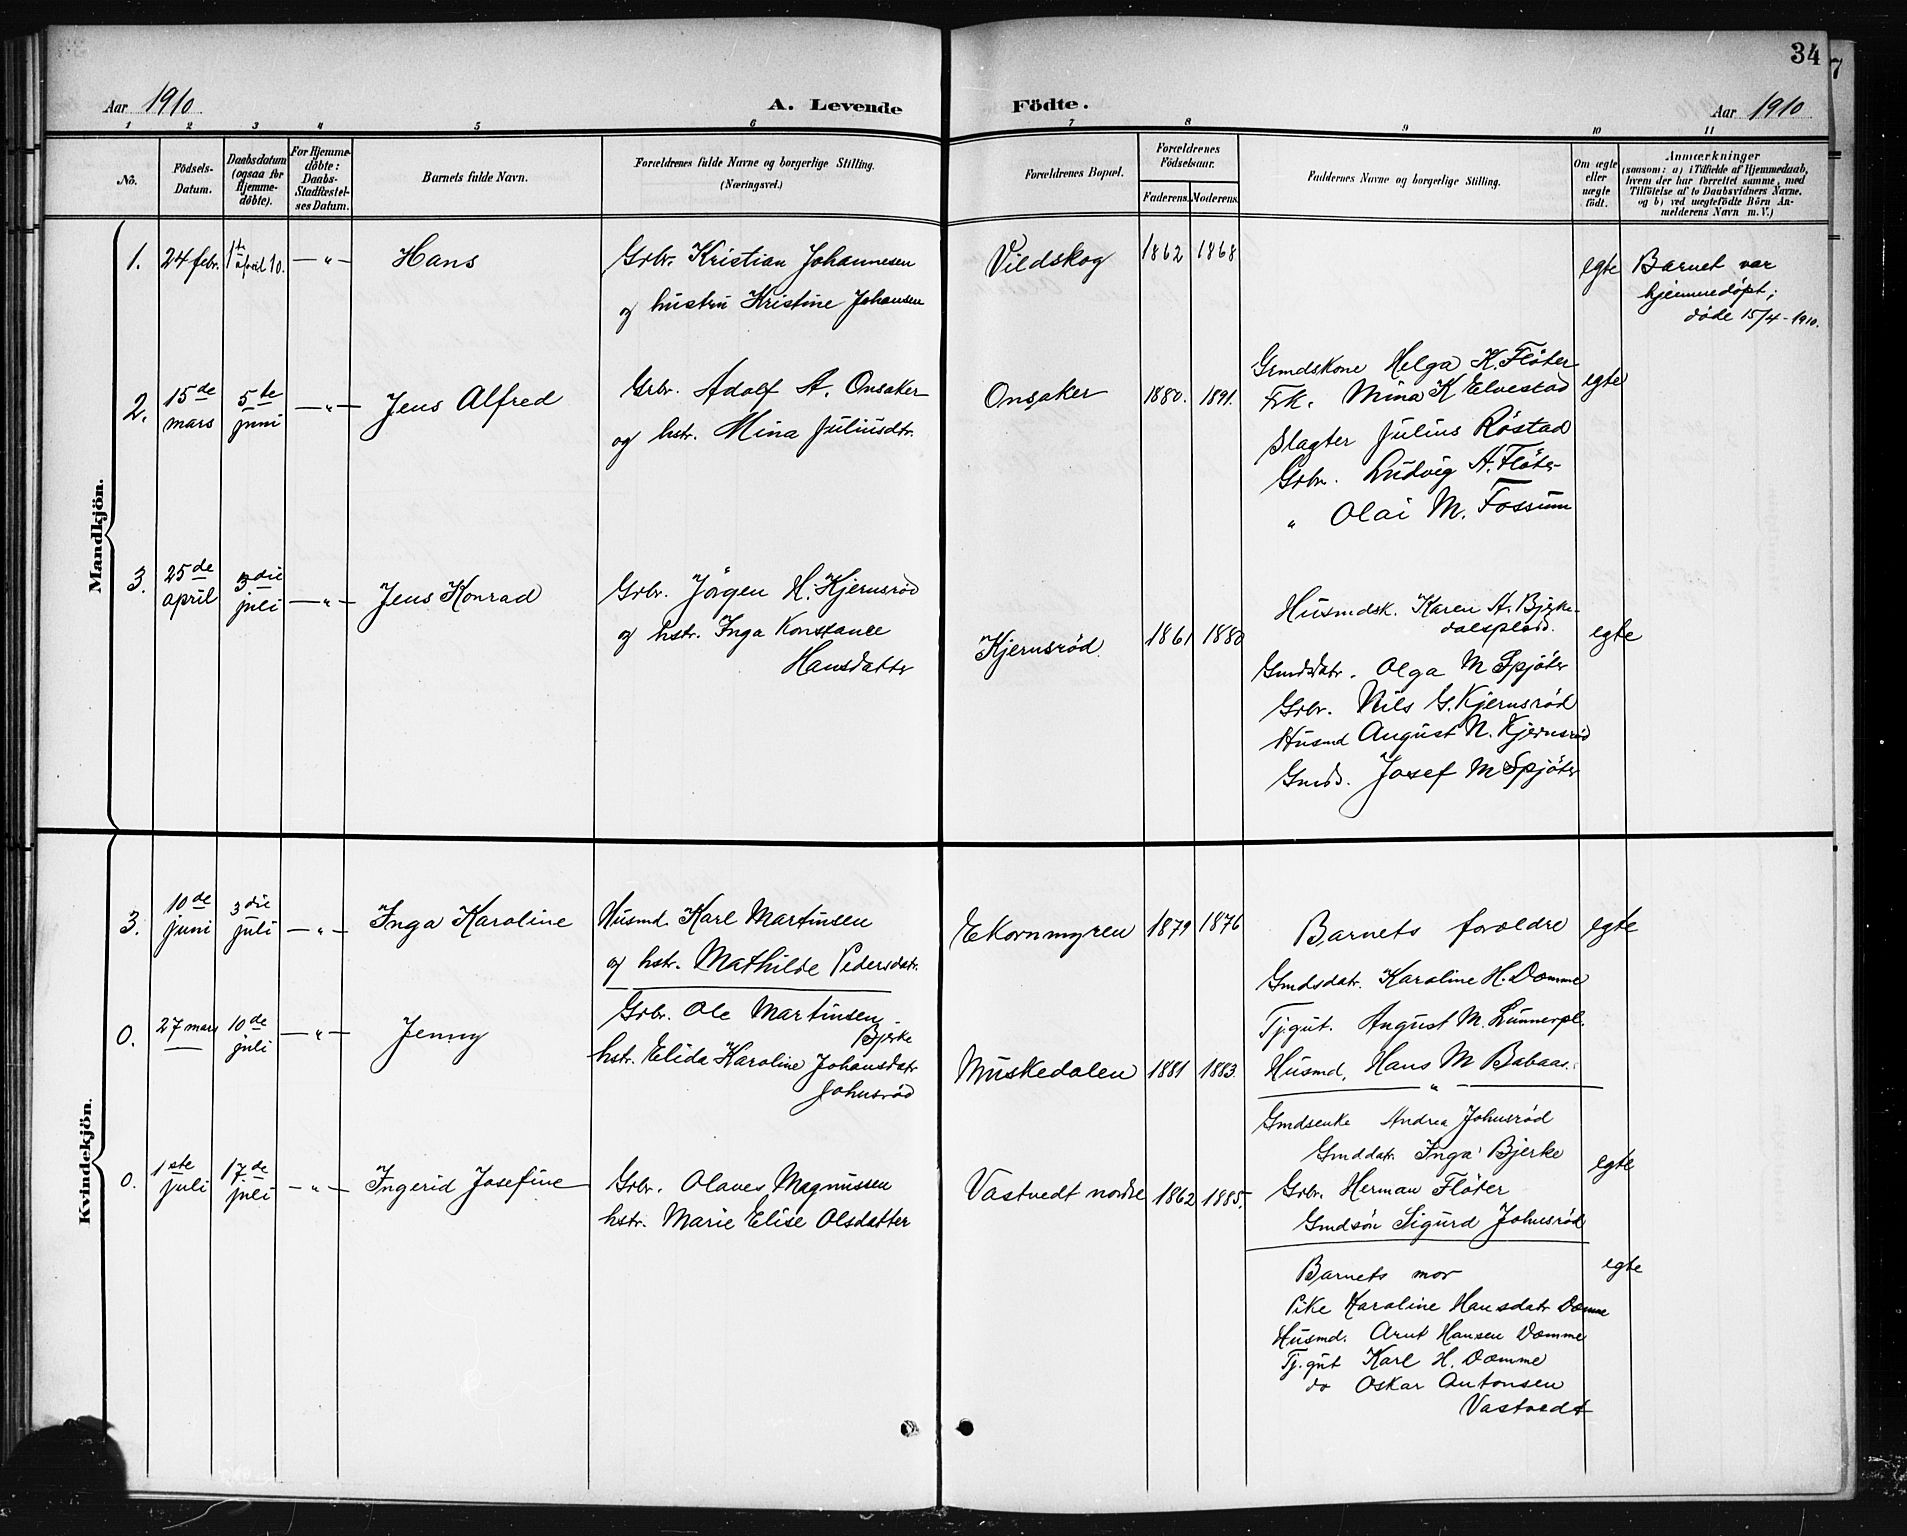 34
7
Aar 1910
A. Levende
Födte.
Aar 1910
1 2 3 4 5 6 7 8 9 10 11
No.
Födsels-
Datum.
Daabsdatum
(ogsaa for
Hjemme-
döbte).
For Hjemme-
döbte:
Daabs-
Stadfæstel-
ses Datum.
Barnets fulde Navn.
Forældrenes fulde Navne og borgerlige Stilling.
(Næringsvei.)
Forældrenes Bopæl.
Forældrenes
Födselsaar.
Faderens. Moderens.
Faddernes Navne og borgerlige Stilling.
Om ægte
eller
uægte
födt.
Anmærkninger
(saasom: a) i Tilfælde af Hjemmedaab,
hvem der har forrettet samme, med
Tilföielse af to Daabsvidners Navne.
og b) ved uegtefödte Börn An-
melderens Navn m. V.)
Mandkjön.
1. 24 febr. 1te april 10. — " — Hans
Grbr. Kristian Johannesen
og hustru Kristine Johansen
Vildskog 1862 1868
egte
Barnet var
hjemmedöpt;
döde 15/4 - 1910.
2. 15de mars 5te juni — " — Jens Alfred
Grbr. Adolf A. Onsaker
og hstr. Mina Juliusdtr.
Onsaker 1880. 1891.
Grmdskone Helga K. Flöter
Frk. Mina K Elvestad
Slagter Julius Röstad
Grbr. Ludvig A. Flöter
" Olai M. Fossum
egte
3. 25de april 3die juli — " — Jens Konrad
Grbr. Jörgen H. Kjernsröd
og hstr. Inga Konstance
Hansdatter
Kjernsröd. 1861 1880
Husmdsk. Karen A. Bjerke-
dalsplads.
Gmdsdatr. Olga M Spjöter
Grbr. Nils G. Kjernsröd
Husmd August N. Kjernsröd
Gmds. Josef M Spjöter
egte
Kvindekjön.
3. 10de juni 3die juli — " — Inga Karoline
Husmd. Karl Martinsen
og hstr. Mathilde Pedersdatr.
Ekornmyren 1879 1876
Barnets forældre
Gmdsdatr. Karoline H. Domme
Tj.gut. August M. Lunnerpl.
Husmd, Hans M Babaas.
"
egte
0. 27 mars 10de juli — " — Jenny
Grbr. Ole Martinsen
Bjerke
hstr. Elida Karoline Johansdatr
Johnsröd
Muskedalen 1881 1883.
Gmdsenke Andrea Johnsröd
Gmddatr. Inga Bjerke
Grbr. Herman Flöter
Gmdsön Sigurd Johnsröd
egte
0. 1ste juli 17de juli — " — Ingerid Josefine
Grbr. Olaves Magnussen
hstr. Marie Elise Olsdatter
Vastvedt nordre 1862 1885.
Barnets mor
Pike Karoline Hansdatr Domme
Husmd. Arnt Hansen Domme
Tj.gut Karl H. Domme
do Oskar Antonsen
Vastvedt
egte